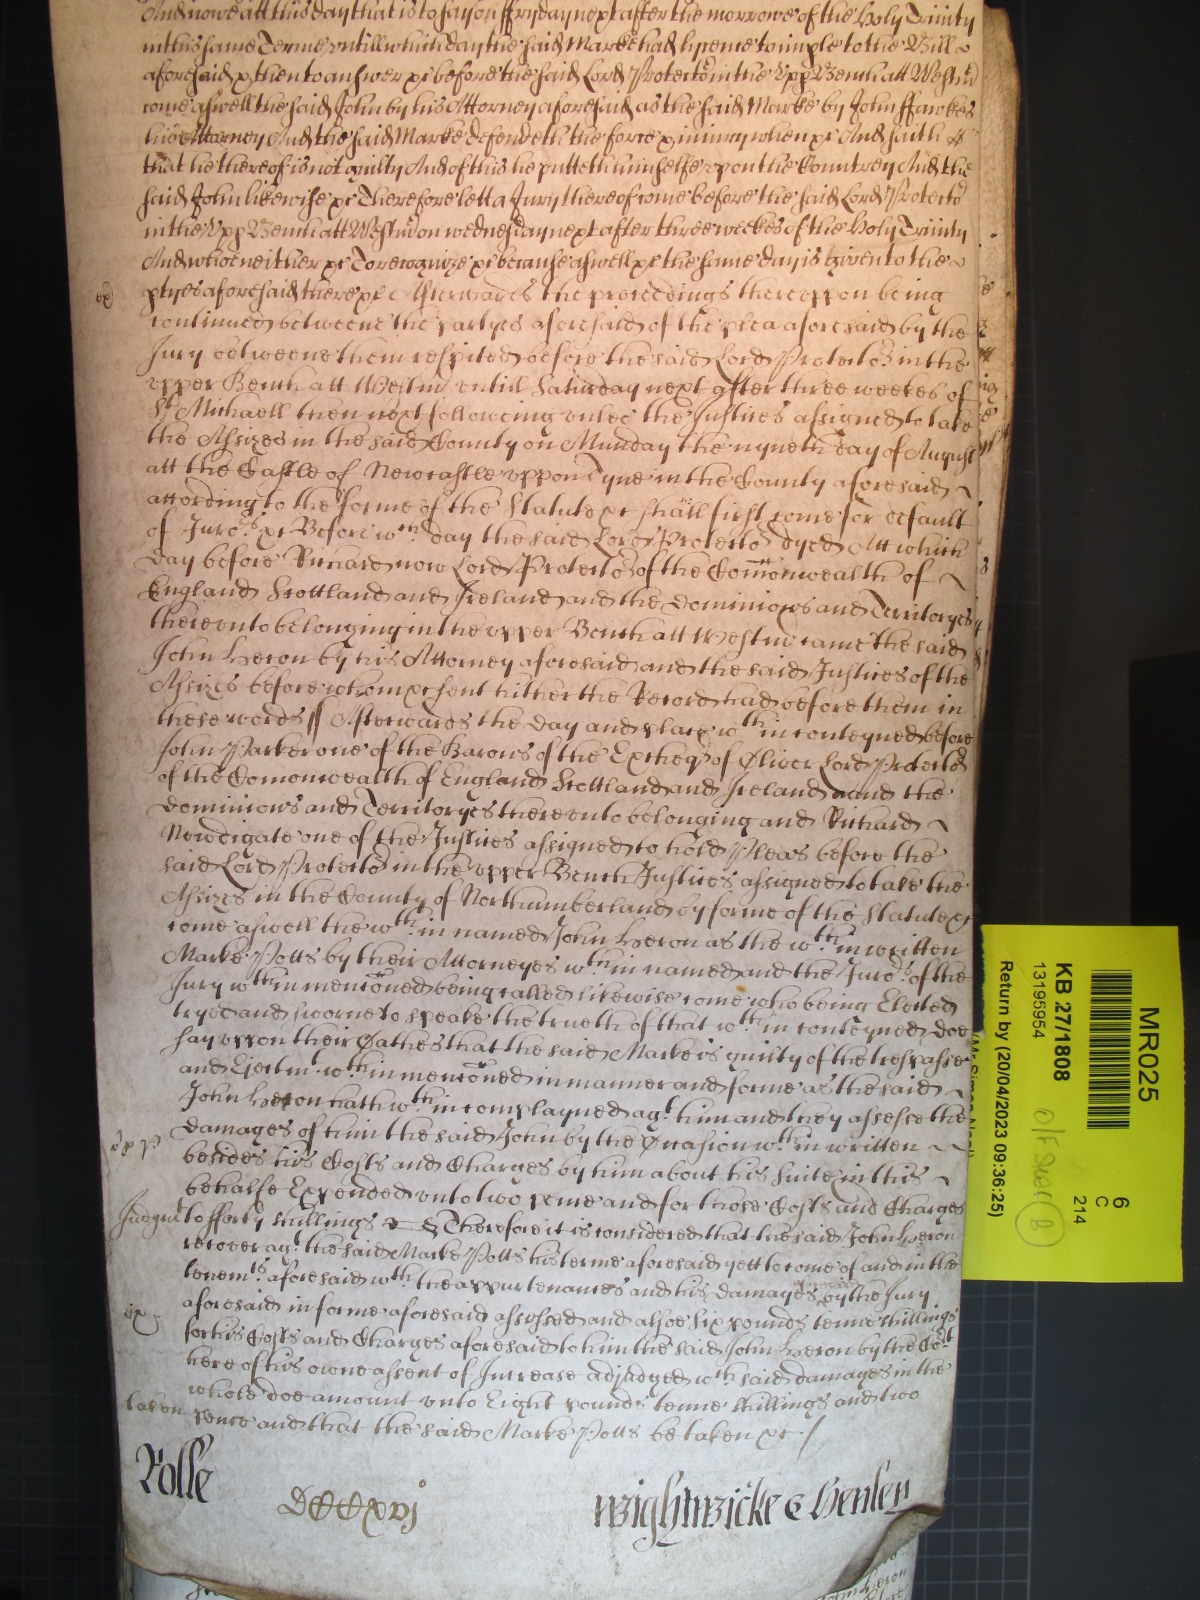 And nowe att this day that is to say on ffryday next after the morrowe of the Holy Trinity
in this same Terme untill which day the said Marke had lycence to imple to the Bill
aforesaid & then to answer &c before the said Lord Protector in the Upp Bench att Westm
come aswell the said John by his Attorney aforesaid as the said Marke by John ffawkes
his Attorney And the said Marke defendeth the force & iniury when &c And saith
that he thereof is not guilty And of this he putteth himselfe upon the Countrey And the
said John likewise &c Therefore lett a Jury thereof come before the said Lord Protector
in the Upp Bench att Westm on wednesday next after three weekes of the Holy Trinity
And who neither &c To recognize &c because aswell &c the same day is given to the
ptyes aforesaid there &c Afterwards the proceedings thereuppon being
continued betweene the partyes aforesaid of the plea aforesaid by the
Jury betweene them respited before the said Lord Protector in the
upper Bench att Westm untill Saturday next after three weekes of
St Michaell then next following unles the Justices assigned to take
the Assizes in the said County on Munday the nyneth day of August
att the Castle of Newcastle uppon Tyne in the County aforesaid
according to the forme of the Statute &c shall first come for default
of Juro.rs &c Before w.ch day the said Lord Protector dyed Att which
day before Richard now Lord Protector of the Comonwealth of
England Scottland and Ireland and the Dominions and Territoryes
thereunto belonging in the upper Bench att Westm came the said
John Heron by his Attorney aforesaid and the said Justices of the
Assizes before whom &c sent hither the Record had before them in
these words ss Afterwards the day and place w.th in conteyned before
John Parker one of the Barons of the Excheq.r of Oliver Lord Protector
of the Comonwealth of England Scottland and Ireland and the
Dominions and Territoryes thereunto belonging and Richard
Newdigate one of the Justices assigned to hold Pleas before the
said Lord Protector in the upper Bench Justices assigned to take the
Assizes in the County of Northumberland by forme of the Statute &c
come aswell the w.th in named John Heron as the w.th in written
Marke Potts by their Attorneyes w.th in named and the Juro.rs of the
Jury w.th in menconed being called likewise come who being Elected
tryed and sworne to speake the trueth of that w.th in conteyned doe
say uppon their Oathes that the said Marke is guilty of the trespasse
and Ejectm.t w.th in menconed in manner and forme as the said
John Heron hath w.th in complayned ag.t him and they assesse the
damages of him the said John by the Occasion w.th in written
besides his Costs and Charges by him about his suite in this
behalfe Expended unto two pence and for those Costs and Charges
Judgm.t to fforty shillings Therefore it is considered that the said John Heron
recover ag.t the said Marke Potts his terme aforesaid yett to come of and in the
tenem.ts aforesaid w.th the appurtenances and his damages by the Jury
aforesaid in forme aforesaid assessed and alsoe six pounds tenne shillings
for his Costs and Charges aforesaid to him the said John Heron by the Co.rt
here of his owne assent of Increase adjudged w.ch said damages in the
whole doe amount unto Eight pounds tenne shillings and two
taken pence and that the said Marke Potts be taken &c
Rolle
DCCCxvj
Wightwicke & Henley
MR025
6
C
214
KB 27/1808
13195954
Return by (20/04/2023 09:36:25)